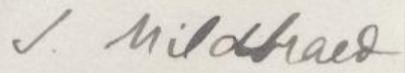 J. Mildbraed